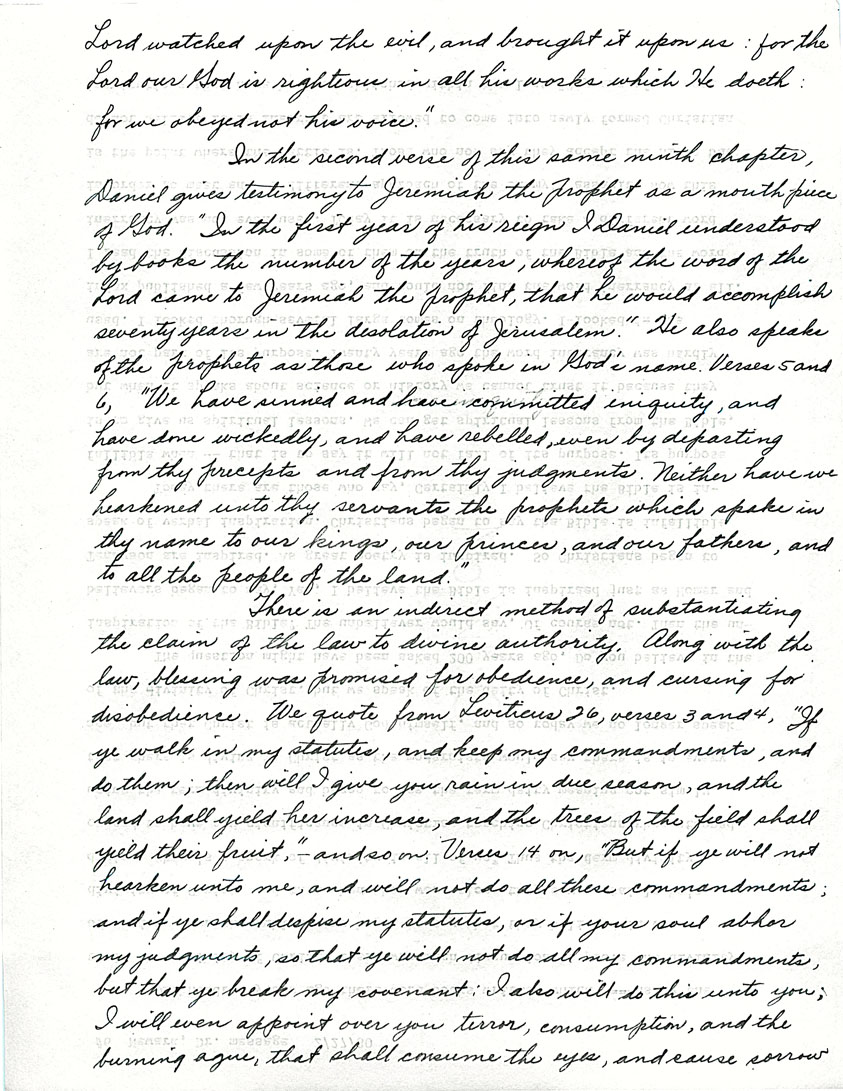 Lord watched upon the evil, and brought it upon us : for the
Lord our God is righteous in all his works which He doeth :
for we obeyed not his voice."
In the second verse of this same ninth chapter,
Daniel gives testimony to Jeremiah the prophet as a mouth piece
of God. "In the first year of his reign I Daniel understood
by books the number of the years, whereof the word of the
Lord came to Jeremiah the prophet, that he would accomplish
seventy years in the desolation of Jerusalem." He also speaks
of the prophets as those who spoke in God's name. Verses 5 and
6, "We have sinned and have committed iniquity, and
have done wickedly, and have rebelled, even by departing
from thy precepts and from thy judgments. Neither have we
hearkened unto thy servants the prophets which spake in
thy name to our kings, our princes, and our fathers, and
to all the people of the land."
There is an indirect method of substantiating
the claim of the law to divine authority. Along with the
law, blessing was promised for obedience, and cursing for
disobedience. We quote from Leviticus 26, verses 3 and 4, "If
ye walk in my statutes, and keep my commandments, and
do them ; then will I give you rain in due season, and the
land shall yield her increase, and the trees of the field shall
yield their fruit," – and so on. Verses 14 on, "But if ye will not
hearken unto me, and will not do all these commandments ;
and if ye shall despise my statutes, or if your soul abhor
my judgments, so that ye will not do all my commandments,
but that ye break my covenant : I also will do this unto you ;
I will even appoint over you terror, consumption, and the
burning ague, that shall consume the eyes, and cause sorrow